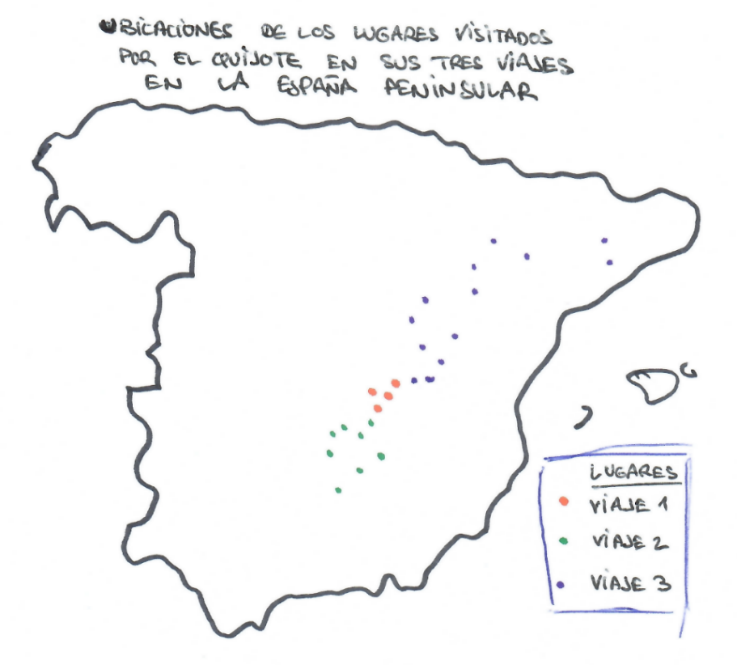 UBICACIONES DE LOS LUGARES VISITADOS
POR EL QUIJOTE EN SUS TRES VIAJES
EN LA ESPAÑA PENINSULAR
LUGARES
VIAJE 1
VIAJE 2
VIAJE 3